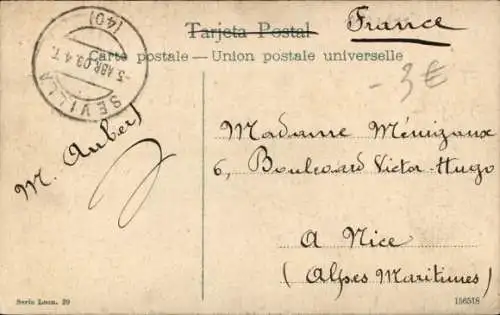 Tarjeta Postal
France
Carte postale — Union postale universelle
SEVILLA
5 ABR 09. 4 T.
(40)
- 3 €
M. Aubert
Madame Ménizaux
6, Boulevard Victor-Hugo
A Nice
(Alpes Maritimes)
Serie Leon. 29
156518